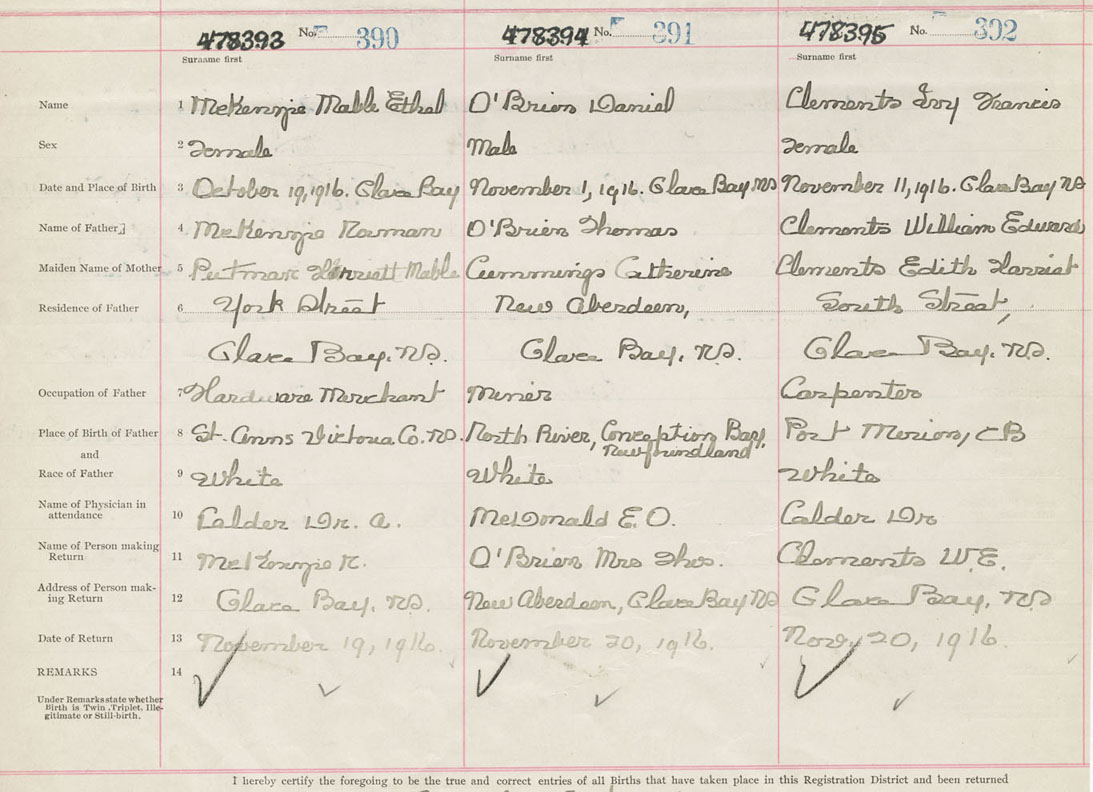 478393 No. 390 478394 No. 391 478395 No. 392
Surname first Surname first Surname first
Name 1 McKenzie Mable Ethel O'Brien Daniel Clements Ivy Francis
Sex 2 Female Male Female
Date and Place of Birth 3 October 19, 1916. Glace Bay November 1, 1916. Glace Bay NS November 11, 1916. Glace Bay NS
Name of Father 4 McKenzie Norman O'Brien Thomas Clements William Edward
Maiden Name of Mother 5 Harriett Mable Cummings Catherine Clements Edith Harriet
Residence of Father 6 York Street New Aberdeen, South Street,
Glace Bay, NS. Glace Bay, NS. Glace Bay, NS.
Occupation of Father 7 Hardware Merchant Miner Carpenter
Place of Birth of Father 8 St. Anns Victoria Co. NS. North River, Conception Bay, Port Morien, CB
and Newfoundland
Race of Father 9 White White White
Name of Physician in
attendance 10 Calder Dr. A. McDonald E.O. Calder Dr
Name of Person making
Return 11 McKenzie O'Brien Mrs Thos. Clements W.E.
Address of Person mak-
ing Return 12 Glace Bay, NS. New Aberdeen, Glace Bay NS Glace Bay, NS
Date of Return 13 November 19, 1916. November 20, 1916. Nov. 20, 1916.
REMARKS 14
Under Remarks state whether
Birth is Twin, Triplet, Ille-
gitimate or Still-birth.
I hereby certify the foregoing to be the true and correct entries of all Births that have taken place in this Registration District and been returned